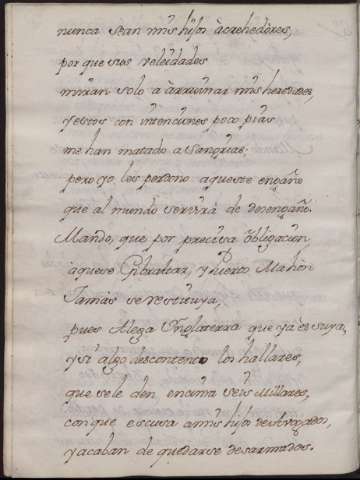 nunca sean mis hijos àcrehedòres,
por que sus veleidades
miran solo a àrruinar mis heredades,
y estos con intenciones poco pias
me han matado a sangrias;
pero yo les perdono aqueste engaño
que al mundo servirà de desengaño.
Mando, que por precisa òbligacion
aquese Gibraltar, y Puerto Mahòn
Jamàs se restituya,
pues Alega Ynglaterra que yà es suya,
y si algo descontento los hallares,
que se le den encima seis Millares,
con que escusa a mis hijos
y acaban de quedarse desarmados.